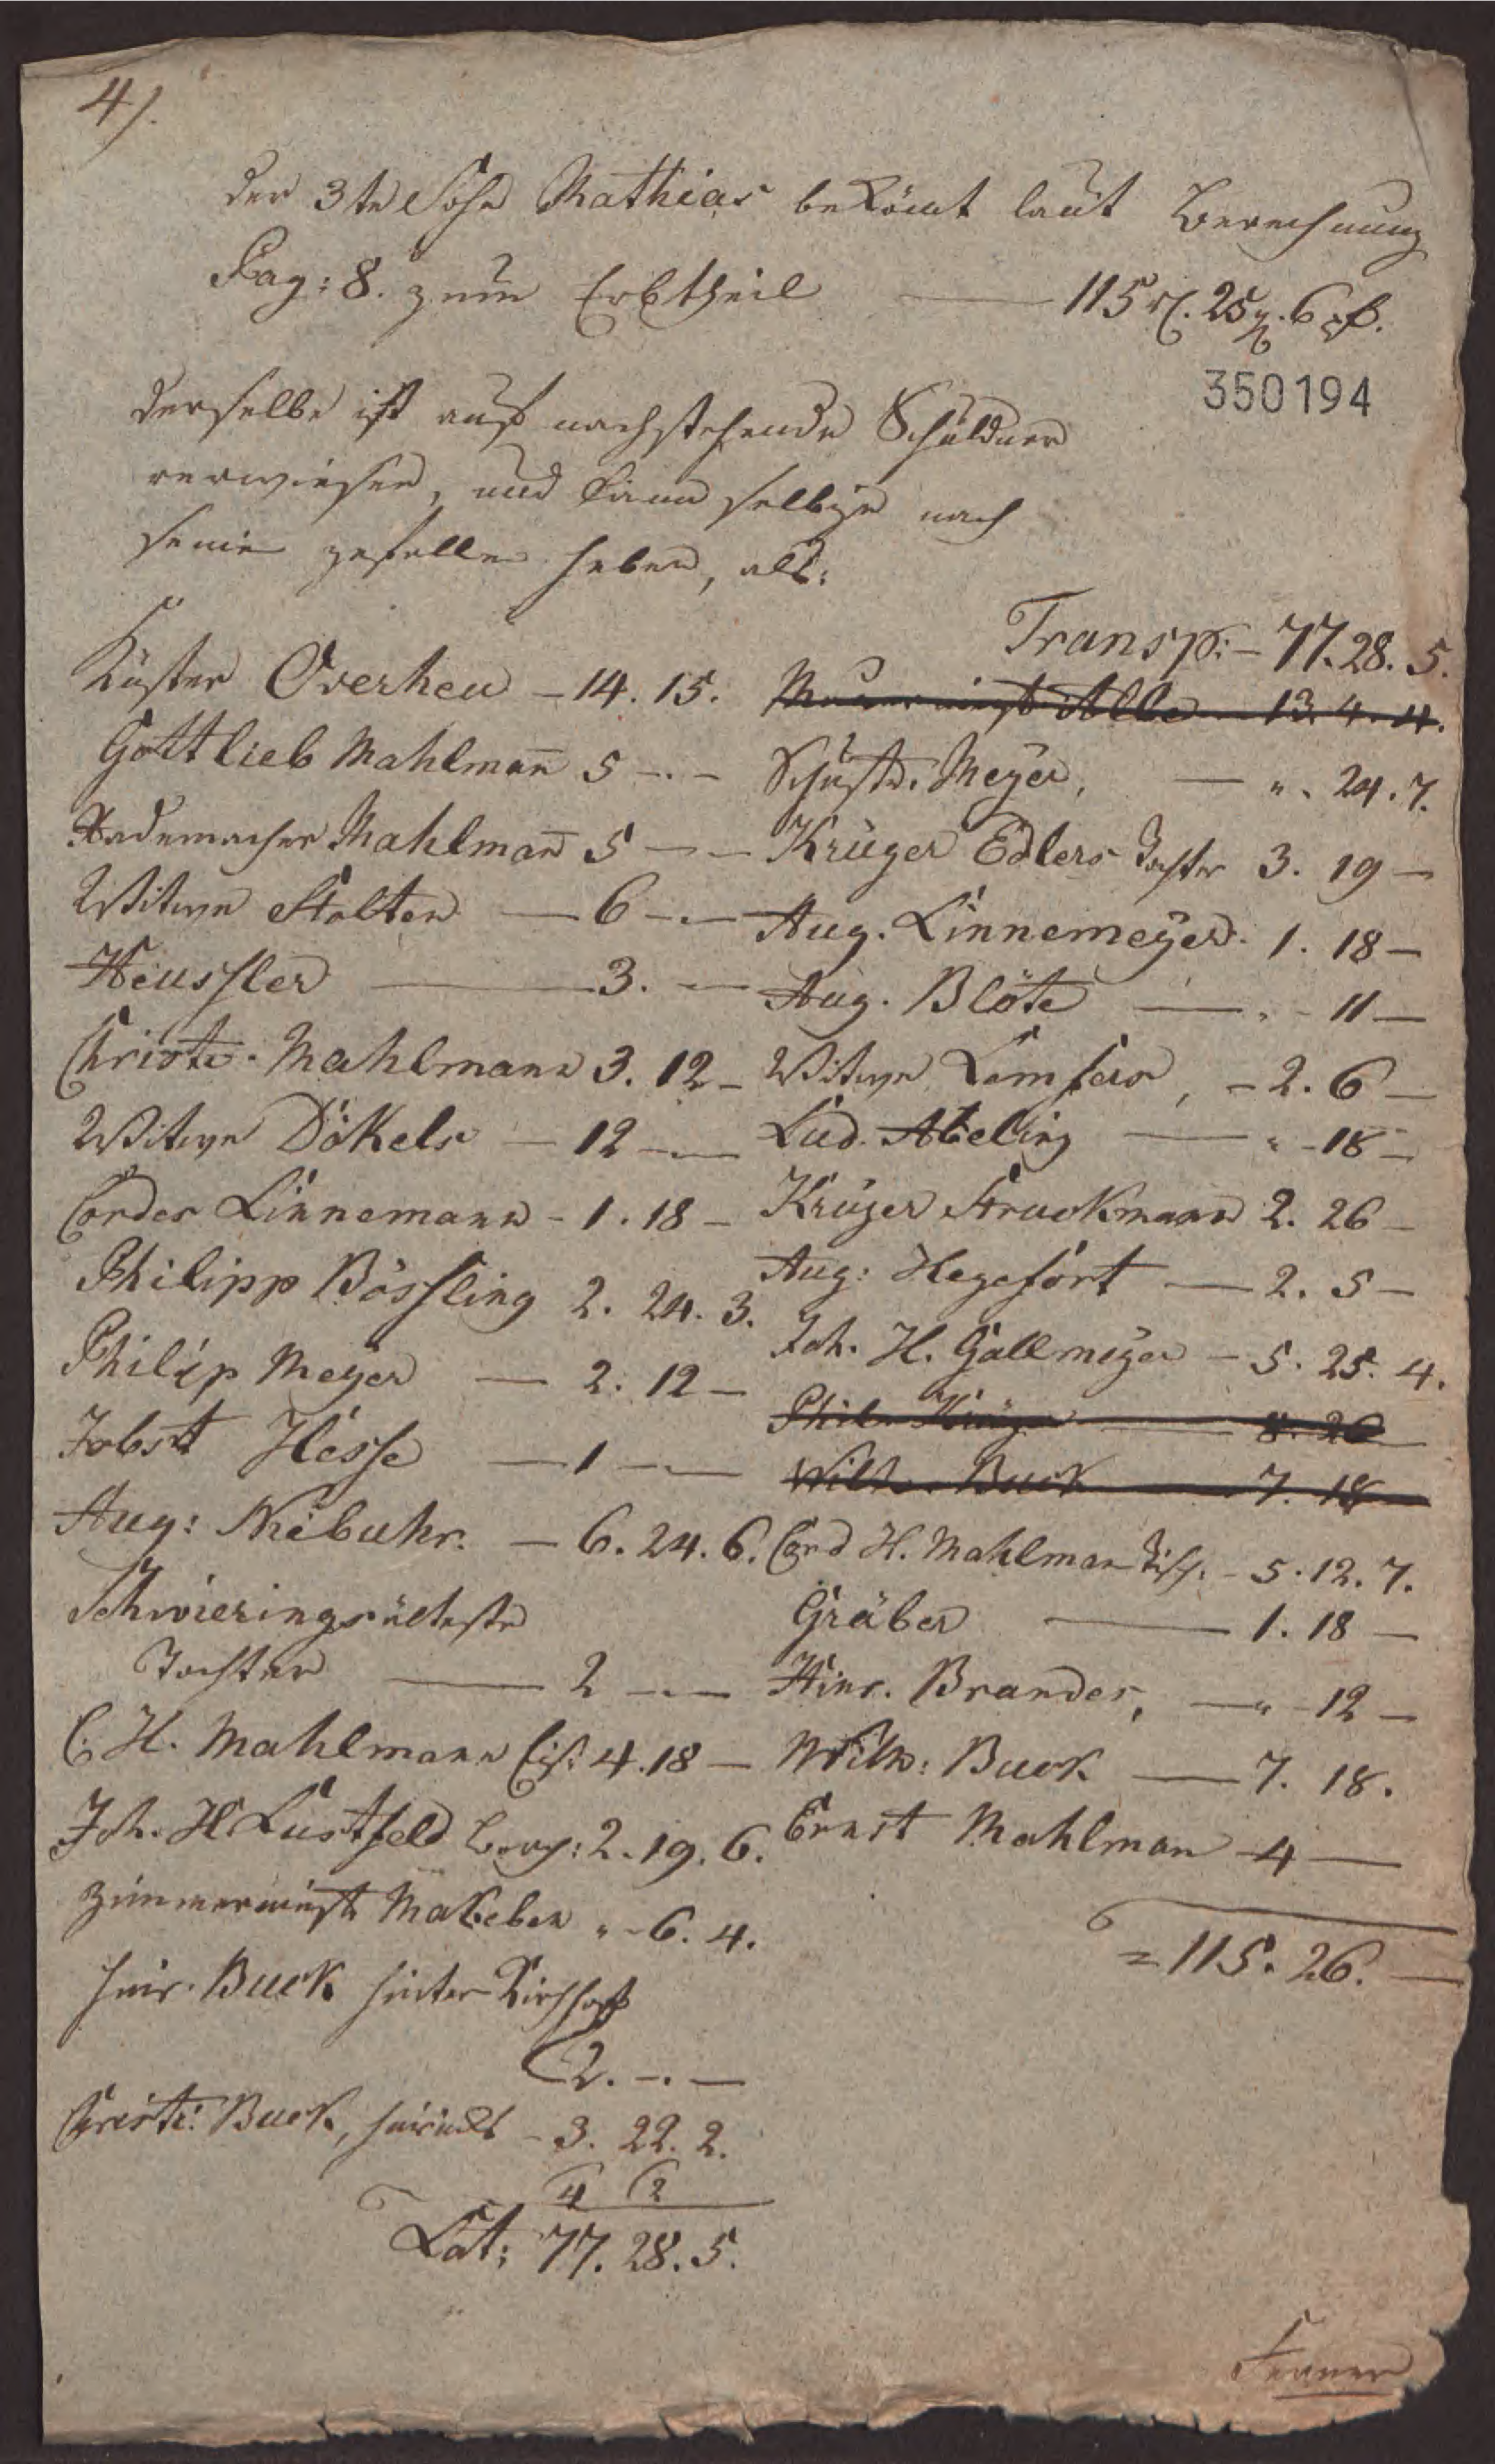 4).
Der 3te Sohn Mathias bekömt laut Berechnung
Pag: 8. zum Erbtheil — 115 rl. 25 g. 6 pf.
350194
Derselbe ist auf nachstehende Schuldner
verwiesen, und kann selbige nach
seinen gefallen heben, als:
Küster Overheu – 14. 15.
Gottlieb Mahlman̄ 5 –.–
Rademacher Mahlman̄ 5 – –
Witwe Stolten — 6 –.–
Heussler — 3. –
Christ. Mahlmann 3. 12 –
Witwe Dökels – 12 –.–
Cordes Linnemann – 1. 18 –
Philipp Bössling 2. 24. 3.
Philip Meyer — 2. 12 –
Jobst Hesse — 1 –.–
Aug: Niebuhr. – 6. 24. 6.
Schwierings älteste
Tochter — 2 –.–
C. H. Mahlmann 4. 18 –
Joh. H Lustfeld 2. 19. 6.
Zimmermeist Makeben " – 6. 4.
Hinr. Buck hinter Kirchhof
2. –. –
Christ: Buck, – 3. 22. 2.
4 2
Lat: 77. 28. 5.
Transp: – 77. 28. 5.
13. 4. 4.
Schust. Meyer, — ". 24. 7.
Krüger Edlers Tochter 3. 19 –
Aug. Linnemeyer. 1. 18 –
Aug. Blöte — . – 11 –
Witwe , – 2. 6 –
Lud. Abeling — " – 18 –
Krüger Struckmann 2. 26 –
Aug: Hegefort — 2. 5 –
Joh. H. Gallmeyer – 5. 25. 4.
Phil. Krüger — 8. 26 –
Wilh. Buck — 7. 18 –
Cord H. Mahlman Tisch. – 5. 12. 7.
Gräber — 1. 18 –
Hinr. Brandes, — " – 12 –
Wilh: Buck — 7. 18.
Ernst Mahlman – 4 —
= 115. 26. —
Ferner